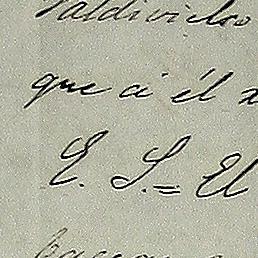 Valdivielso
que ci él
E. S.= El